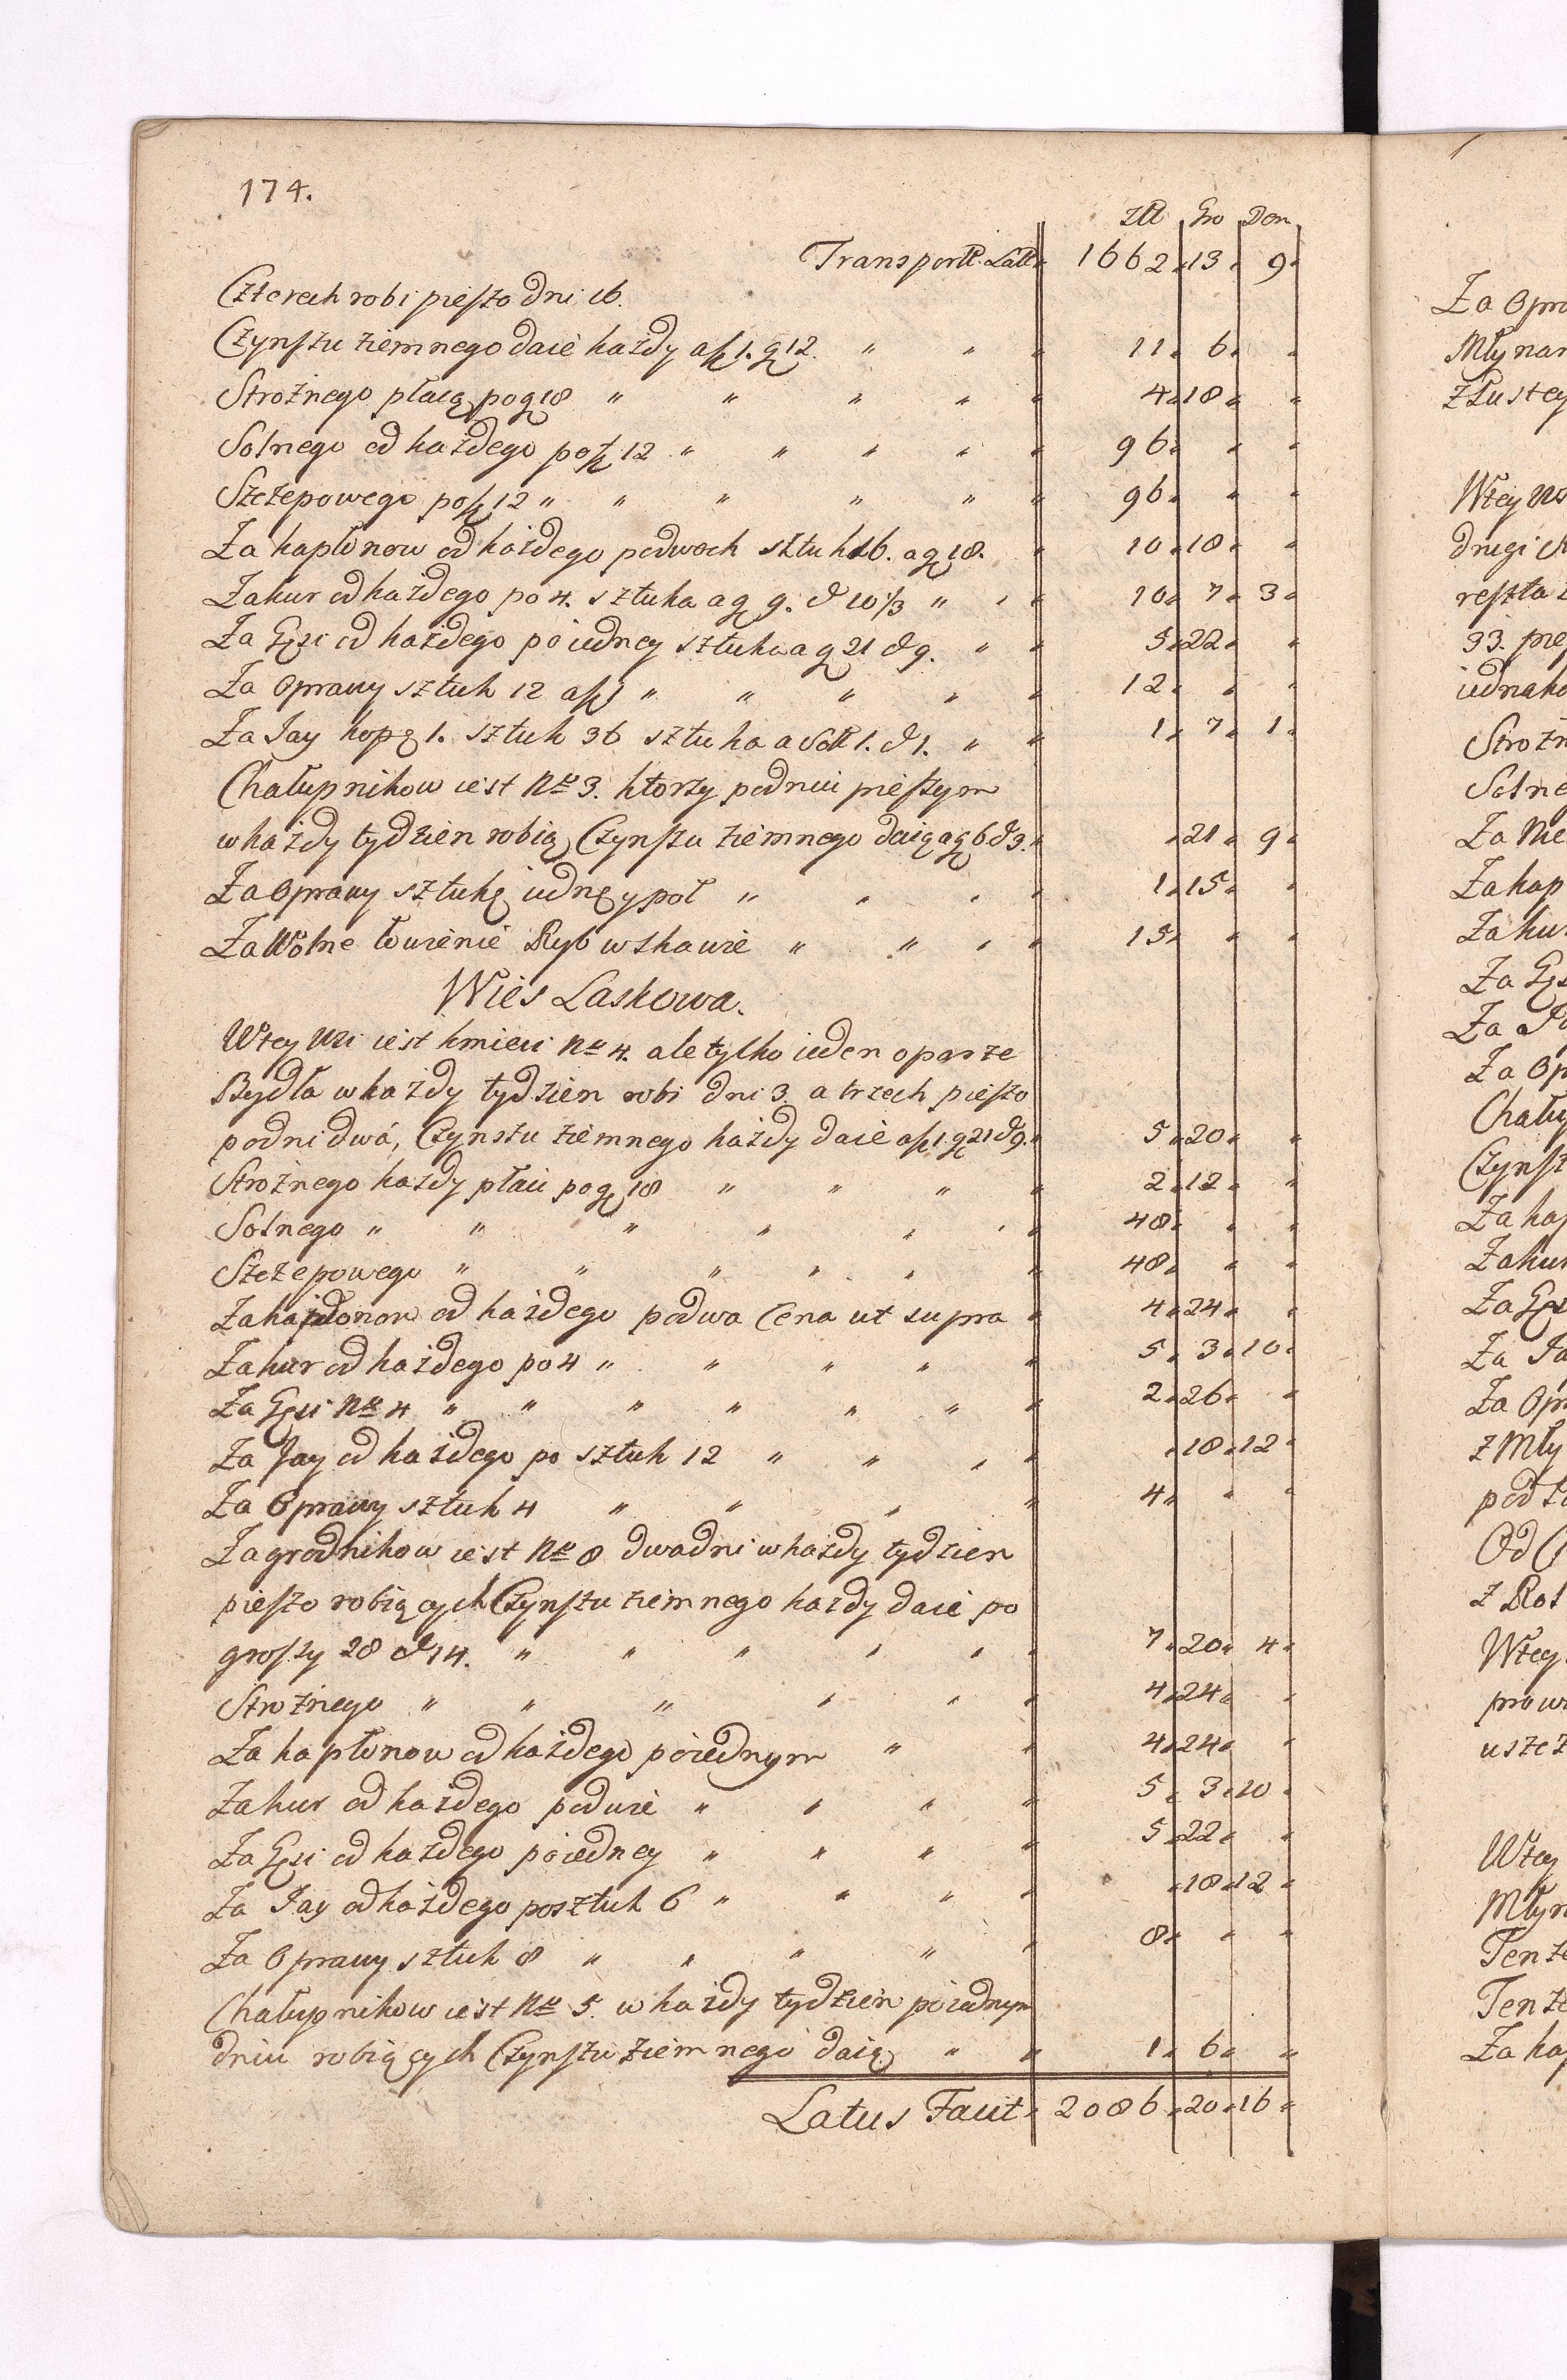 174.
Zł Gro Den
Transport Lat 1662 13 9
Czterech robi pieszo dni 16.
Czynszu ziemnego daie każdy a fl 1. g 12. " " " 11 6 "
Strożnego płacą po g 18 " " " " " 4 18 "
Solnego od każdego po fl 12 " " " " " 96 " "
Szczepowego po fl 12 " " " " " " 96 " "
Za kapłonow od każdego po dwoch sztuk 16. a g 18. " 10 18 "
Za kur od każdego po 4. sztuka a g 9. d 10 1/3 " " " 10 7 3
Za Gęsi od każdego po iedney sztuka a g 21 d 9. " " 5 22 "
Za Oprawy sztuk 12 a fl 1 " " " " " 12 " "
Za Jay kopę 1. sztuk 36 sztuka a Sol 1. d 1. " " 1 7 1
Chałupnikow iest Nro 3. ktorzy po dniu pieszym
w każdy tydzien robią, Czynszu ziemnego daią a g 6 d 9. " " 21 9
Za Oprawy sztukę iednę y poł " " " " 1 15 "
Za Wolne łowienie Ryb w Skawie " " " " 15 " "
Wieś Laskowa.
W tey Wsi iest kmieci Nro 4. ale tylko ieden o parze
Bydła w każdy tydzien robi dni 3. a trzech pieszo
po dni dwá, Czynszu ziemnego każdy daie a fl 1. g 21 d 9. " 5 20 "
Strożnego każdy płaci po g 18 " " " " 2 12 "
Solnego " " " " " " " 48 " "
Szczepowego " " " " " " 48 " "
Za kapłonow od każdego po dwa Cena ut supra " 4 24 "
Za kur od każdego po 4 " " " " " 5 3 10
Za Gęsi Nro 4 " " " " " " " 2 26 "
Za Jay od każdego po sztuk 12 " " " " " 18 12
Za Oprawy sztuk 4 " " " " 4 " "
Zagrodnikow iest Nro 8 dwa dni w każdy tydzien
pieszo robiących Czynszu ziemnego każdy daie po
groszy 28 d 14. " " " " " " 7 20 4
Strożnego " " " " " " 4 24 "
Za kapłonow od każdego po iednym " " 4 24 "
Za kur od każdego po dwie " " " " 5 3 10
Za Gęsi od każdego po iedney " " " " 5 22 "
Za Jay od każdego po sztuk 6 " " " " " 18 12
Za Oprawy sztuk 8 " " " " " 8 " "
Chałupnikow iest Nro 5. w każdy tydzien po iednym
dniu robiących Czynszu ziemnego daią " " 1 6 "
Latus Facit 2086 20 16